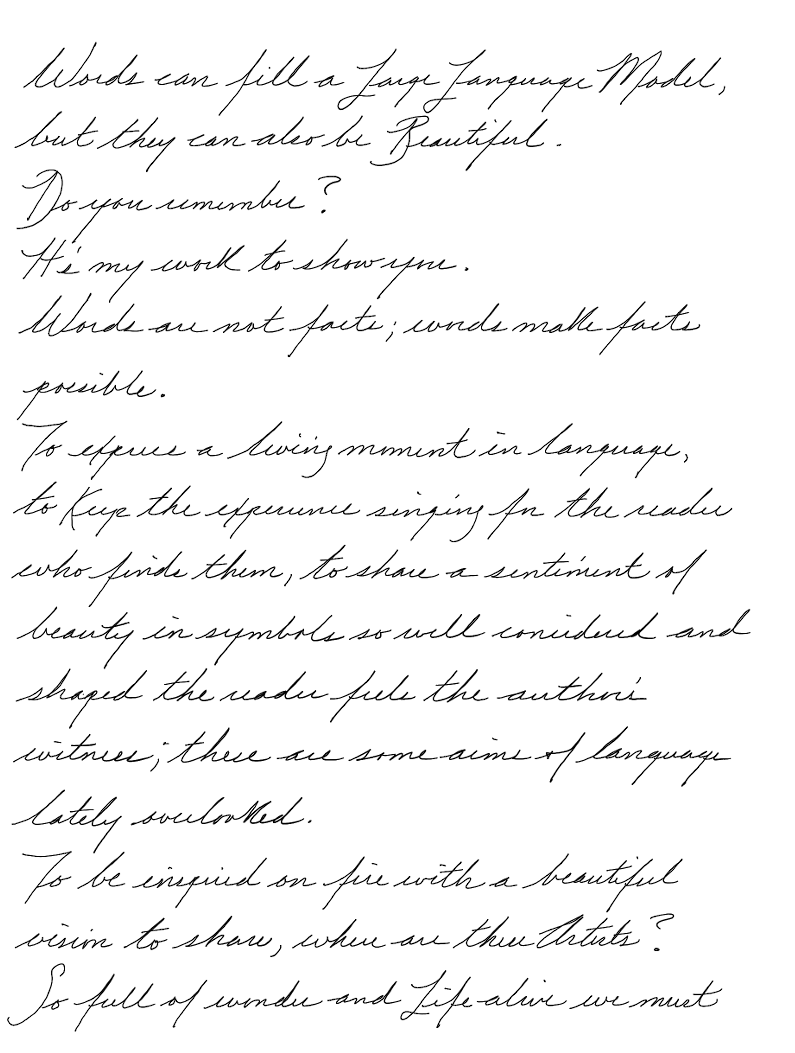 Words can fill a Large Language Model,
but they can also be Beautiful.
Do you remember?
It's my work to show you.
Words are not facts; words make facts
possible.
To express a living moment in language,
to keep the experience singing for the reader
who finds them, to share a sentiment of
beauty in symbols so well considered and
shaped the reader feels the author's
witness; these are some aims of language
lately overlooked.
To be inspired on fire with a beautiful
vision to share, where are these Artists?
So full of wonder and Life-alive we must